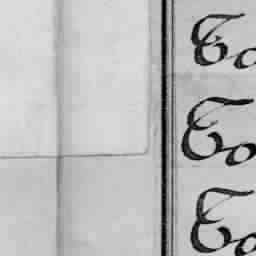 To
To
To